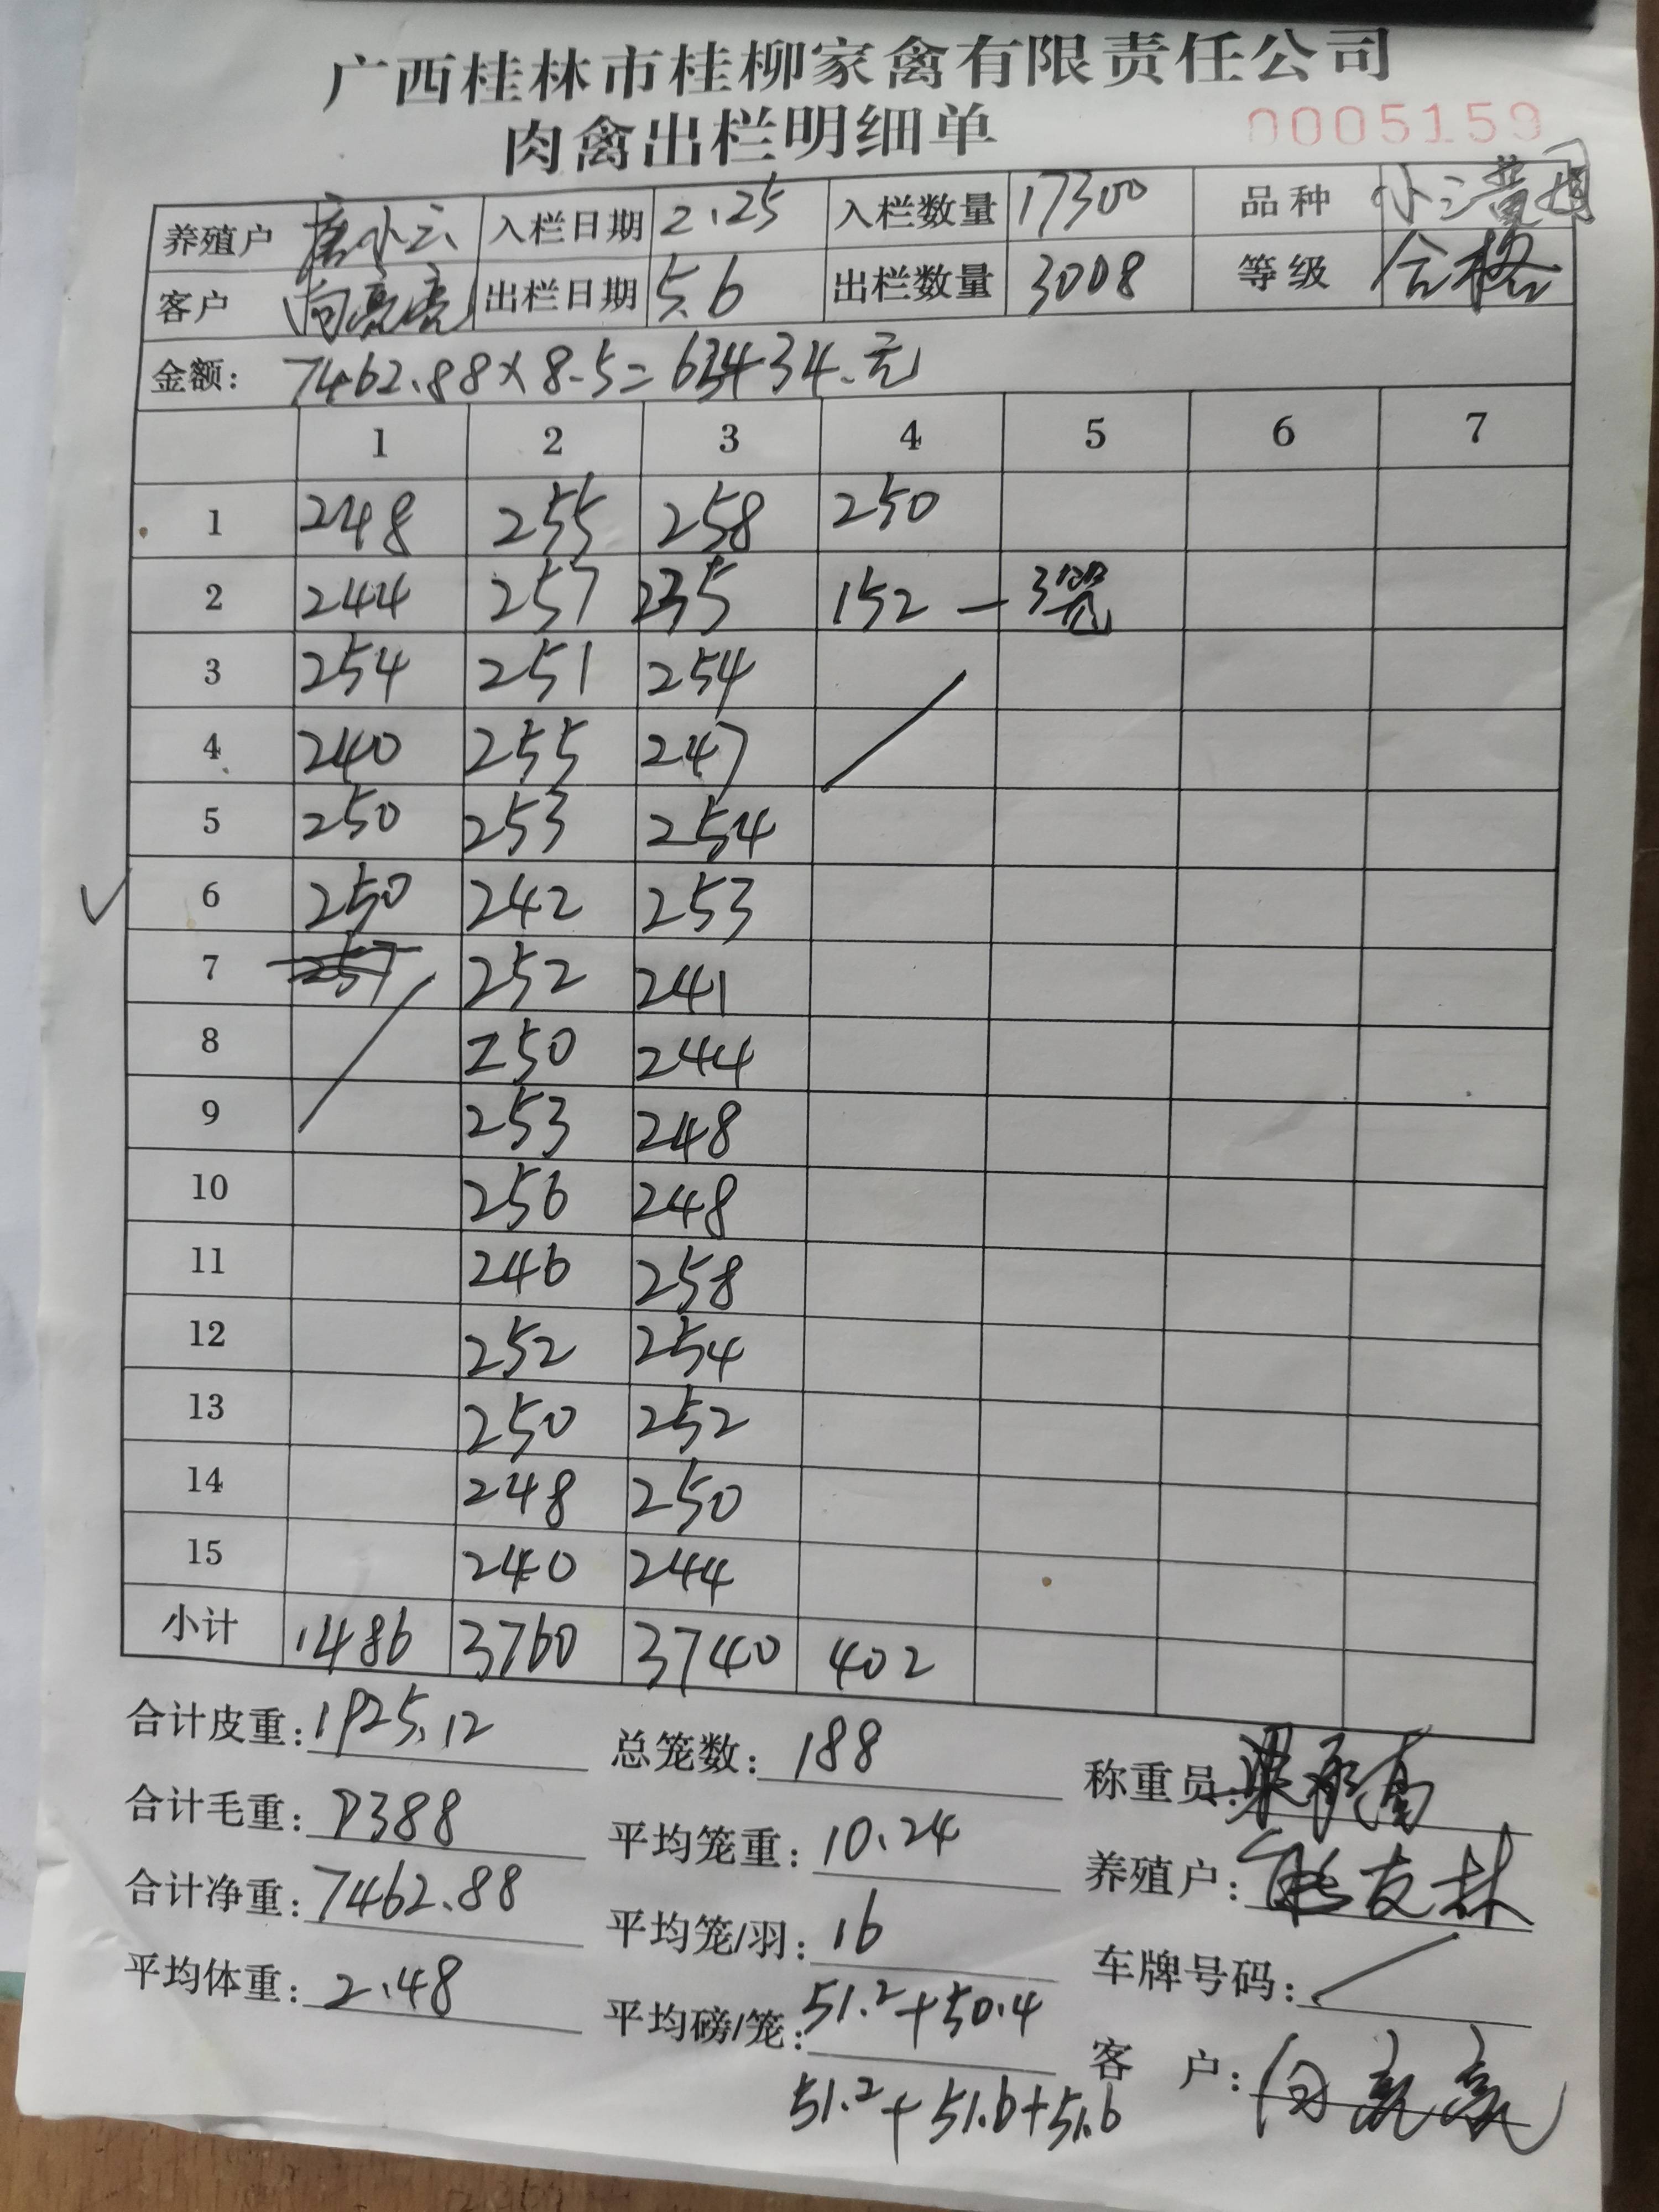 广西桂林市桂柳家禽有限责任公司
肉禽出栏明细单
0005159
养殖户 唐小云 入栏日期 2.25 入栏数量 17300 品种 小三黄
客户 向亮亮 出栏日期 5.6 出栏数量 3008 等级 合格
金额: 7462.88×8.5=63434.元
1 2 3 4 5 6 7
1 248 255 258 250
2 244 257 235 152 — 3笼
3 254 251 254
4 240 255 247
5 250 253 254
6 250 242 253
7 257 252 241
8 250 244
9 253 248
10 256 248
11 246 258
12 252 254
13 250 252
14 248 250
15 240 244
小计 1486 3760 3740 402
合计皮重: 1925.12 总笼数: 188 称重员:
合计毛重: 9388 平均笼重: 10.24 养殖户: 友林
合计净重: 7462.88 平均笼/羽: 16 车牌号码:
平均体重: 2.48 平均磅/笼: 51.2+50.4 客户: 向亮亮
51.2+51.6+51.6